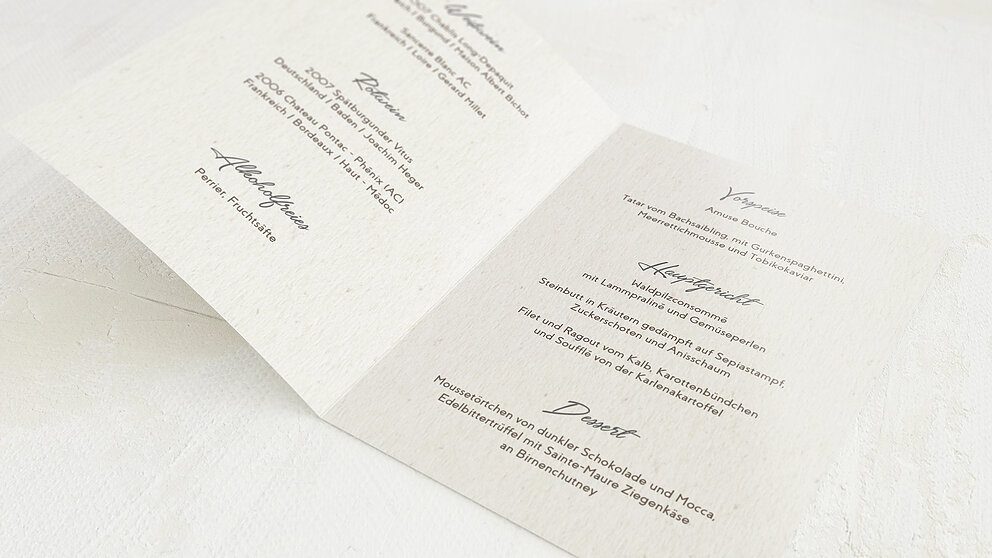 Weisswein
2007 Chablis Long-Depaquit
/ Burgund / Maison Albert Bichot
Sancerre Blanc AC
Frankreich / Loire / Gerard Millet
Rotwein
2007 Spätburgunder Vitus
Deutschland / Baden / Joachim Heger
2006 Chateau Pontac - Phénix (AC)
Frankreich / Bordeaux / Haut - Médoc
Alkoholfreies
Perrier, Fruchtsäfte
Vorspeise
Amuse Bouche
Tatar vom Bachsaibling, mit Gurkenspaghettini,
Meerrettichmousse und Tobikokaviar
Hauptgericht
Waldpilzconsommé
mit Lammpraliné und Gemüseperlen
Steinbutt in Kräutern gedämpft auf Sepiastampf,
Zuckerschoten und Anisschaum
Filet und Ragout vom Kalb, Karottenbündchen
und Soufflé von der Karlenakartoffel
Dessert
Moussetörtchen von dunkler Schokolade und Mocca,
Edelbittertrüffel mit Sainte-Maure Ziegenkäse
an Birnenchutney